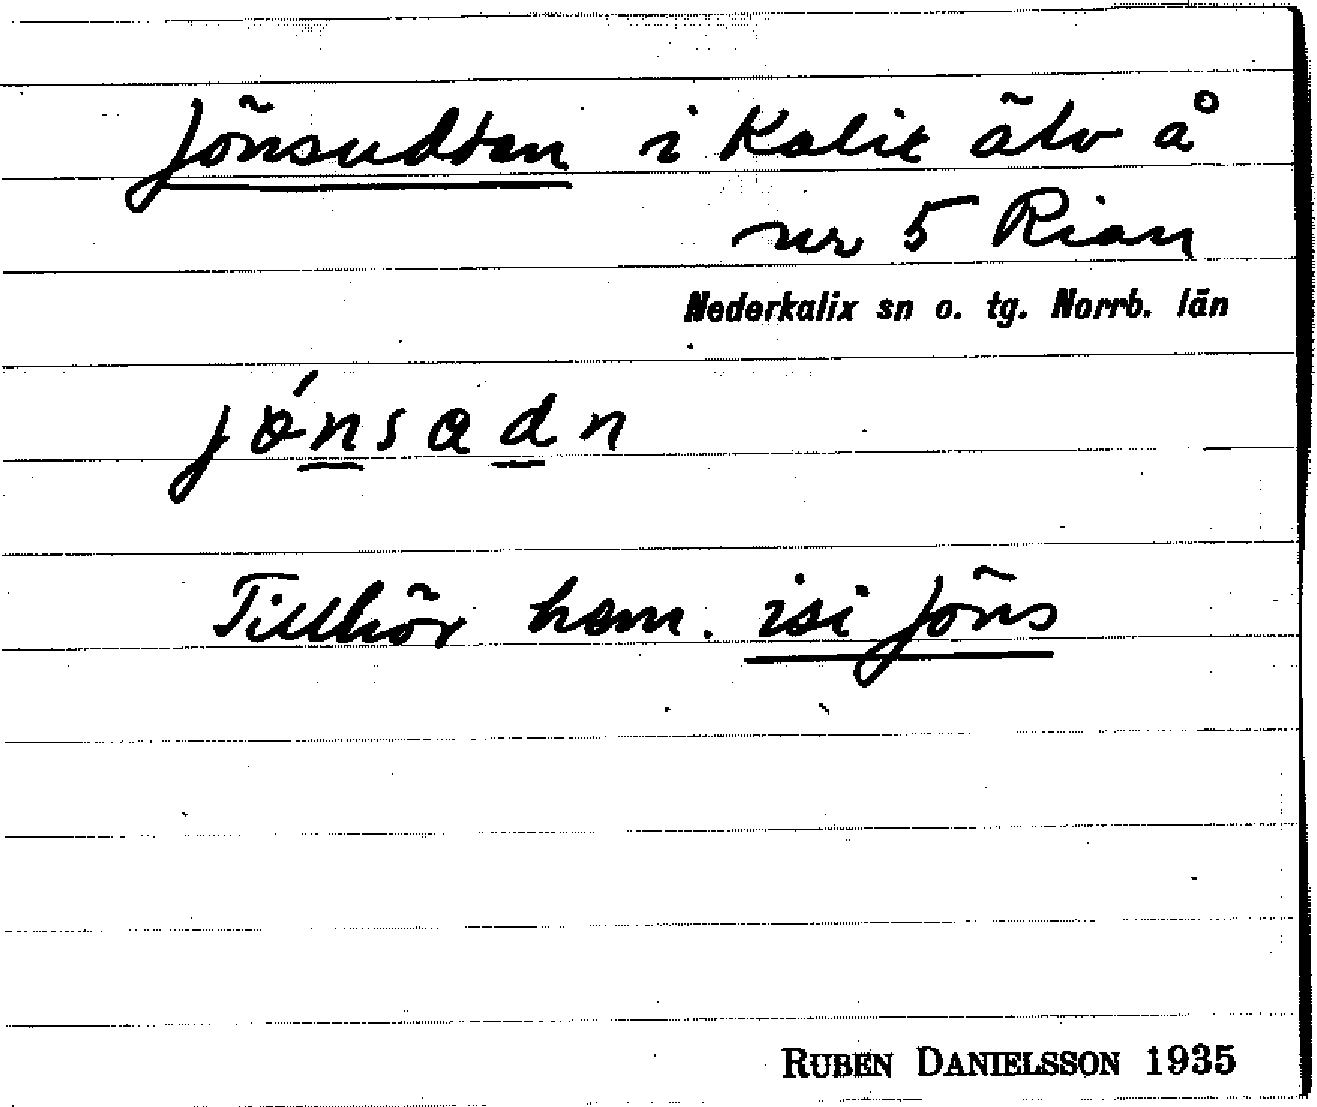 Jönsudden i Kalix älv å
nr 5 Rian
Nederkalix sn o. tg. Norrb. län
jǿnsadn
Tillhör hem. isi Jöns
RUBEN DANIELSSON 1935